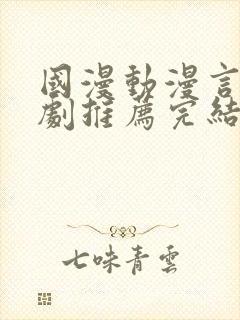 國漫動漫言
劇推薦完結
七味青雲